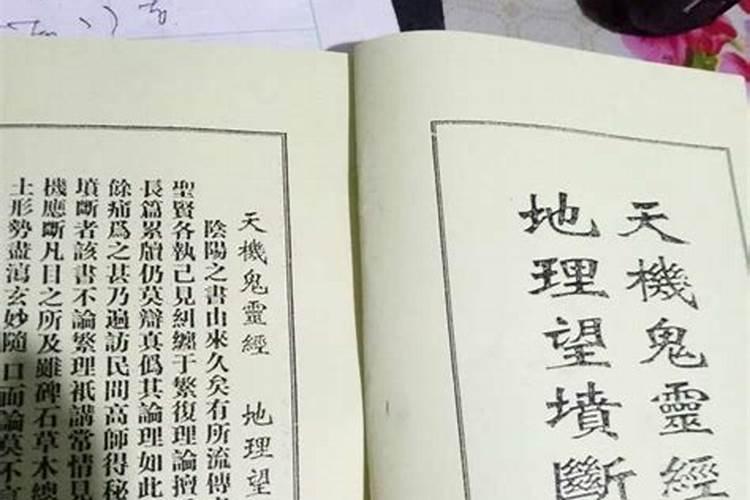 天機鬼靈經
地理望墳斷
天機鬼靈經 地理望
陰陽之書由來久矣有所流傳
聖賢各執己見糾纏于繁復理論擅
長篇累牘仍莫辯真僞其論理如此
餘痛爲之甚乃遍訪民間高師得秘
墳斷者該書不論繁理祇講常情見
機應斷凡目之所及雖碑石草木總
土形勢盡漓玄妙隨口面論莫不